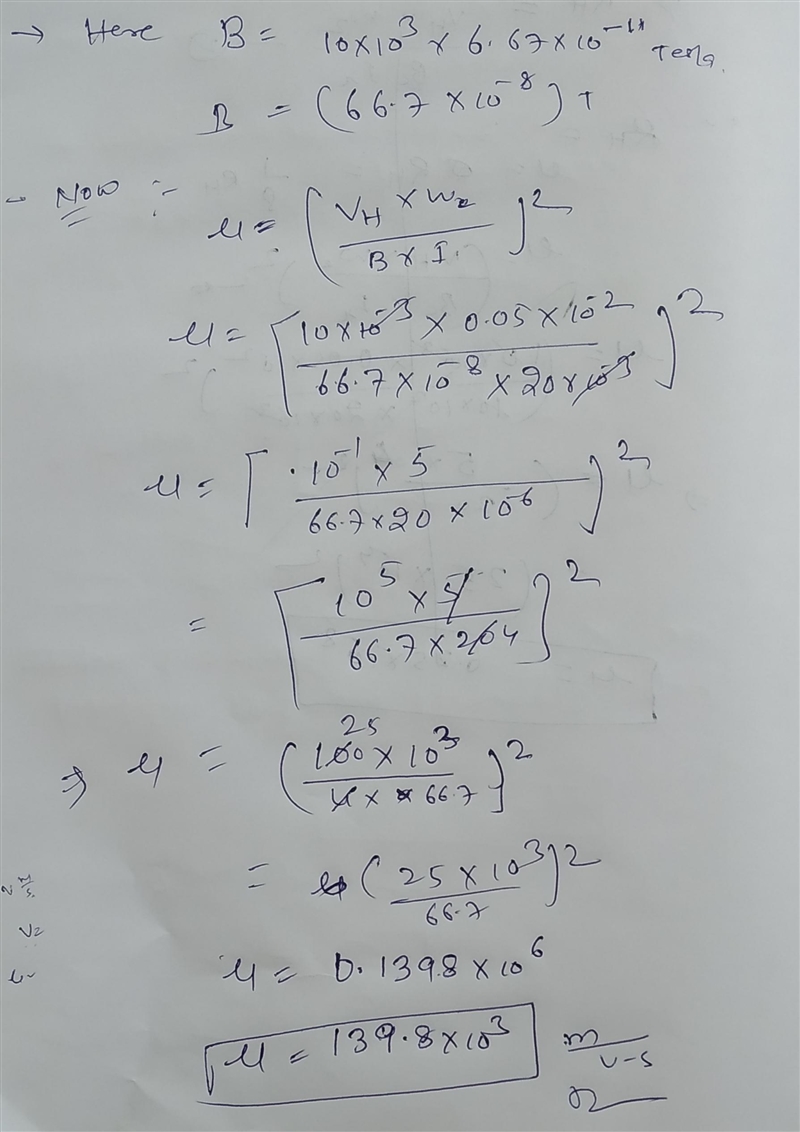 → Here B = 10×10³ × 6.67×10⁻¹¹ Tesla.
B = (66.7 × 10⁻⁸) T
- Now :-
μ = (V_H × W₂ / B × I.)²
μ = [10×10⁻³ × 0.05×10⁻² / 66.7×10⁻⁸ × 20×10⁻³]²
μ = [10⁻¹ × 5 / 66.7×20 × 10⁻⁶]²
= [10⁵ × 5 / 66.7 × 20 4]²
25
⇒ μ = (100 × 10³ / 4 × 66.7)²
= (25 × 10³ / 66.7)²
μ = 0.1398 × 10⁶
μ = 139.8×10³ m / V-s